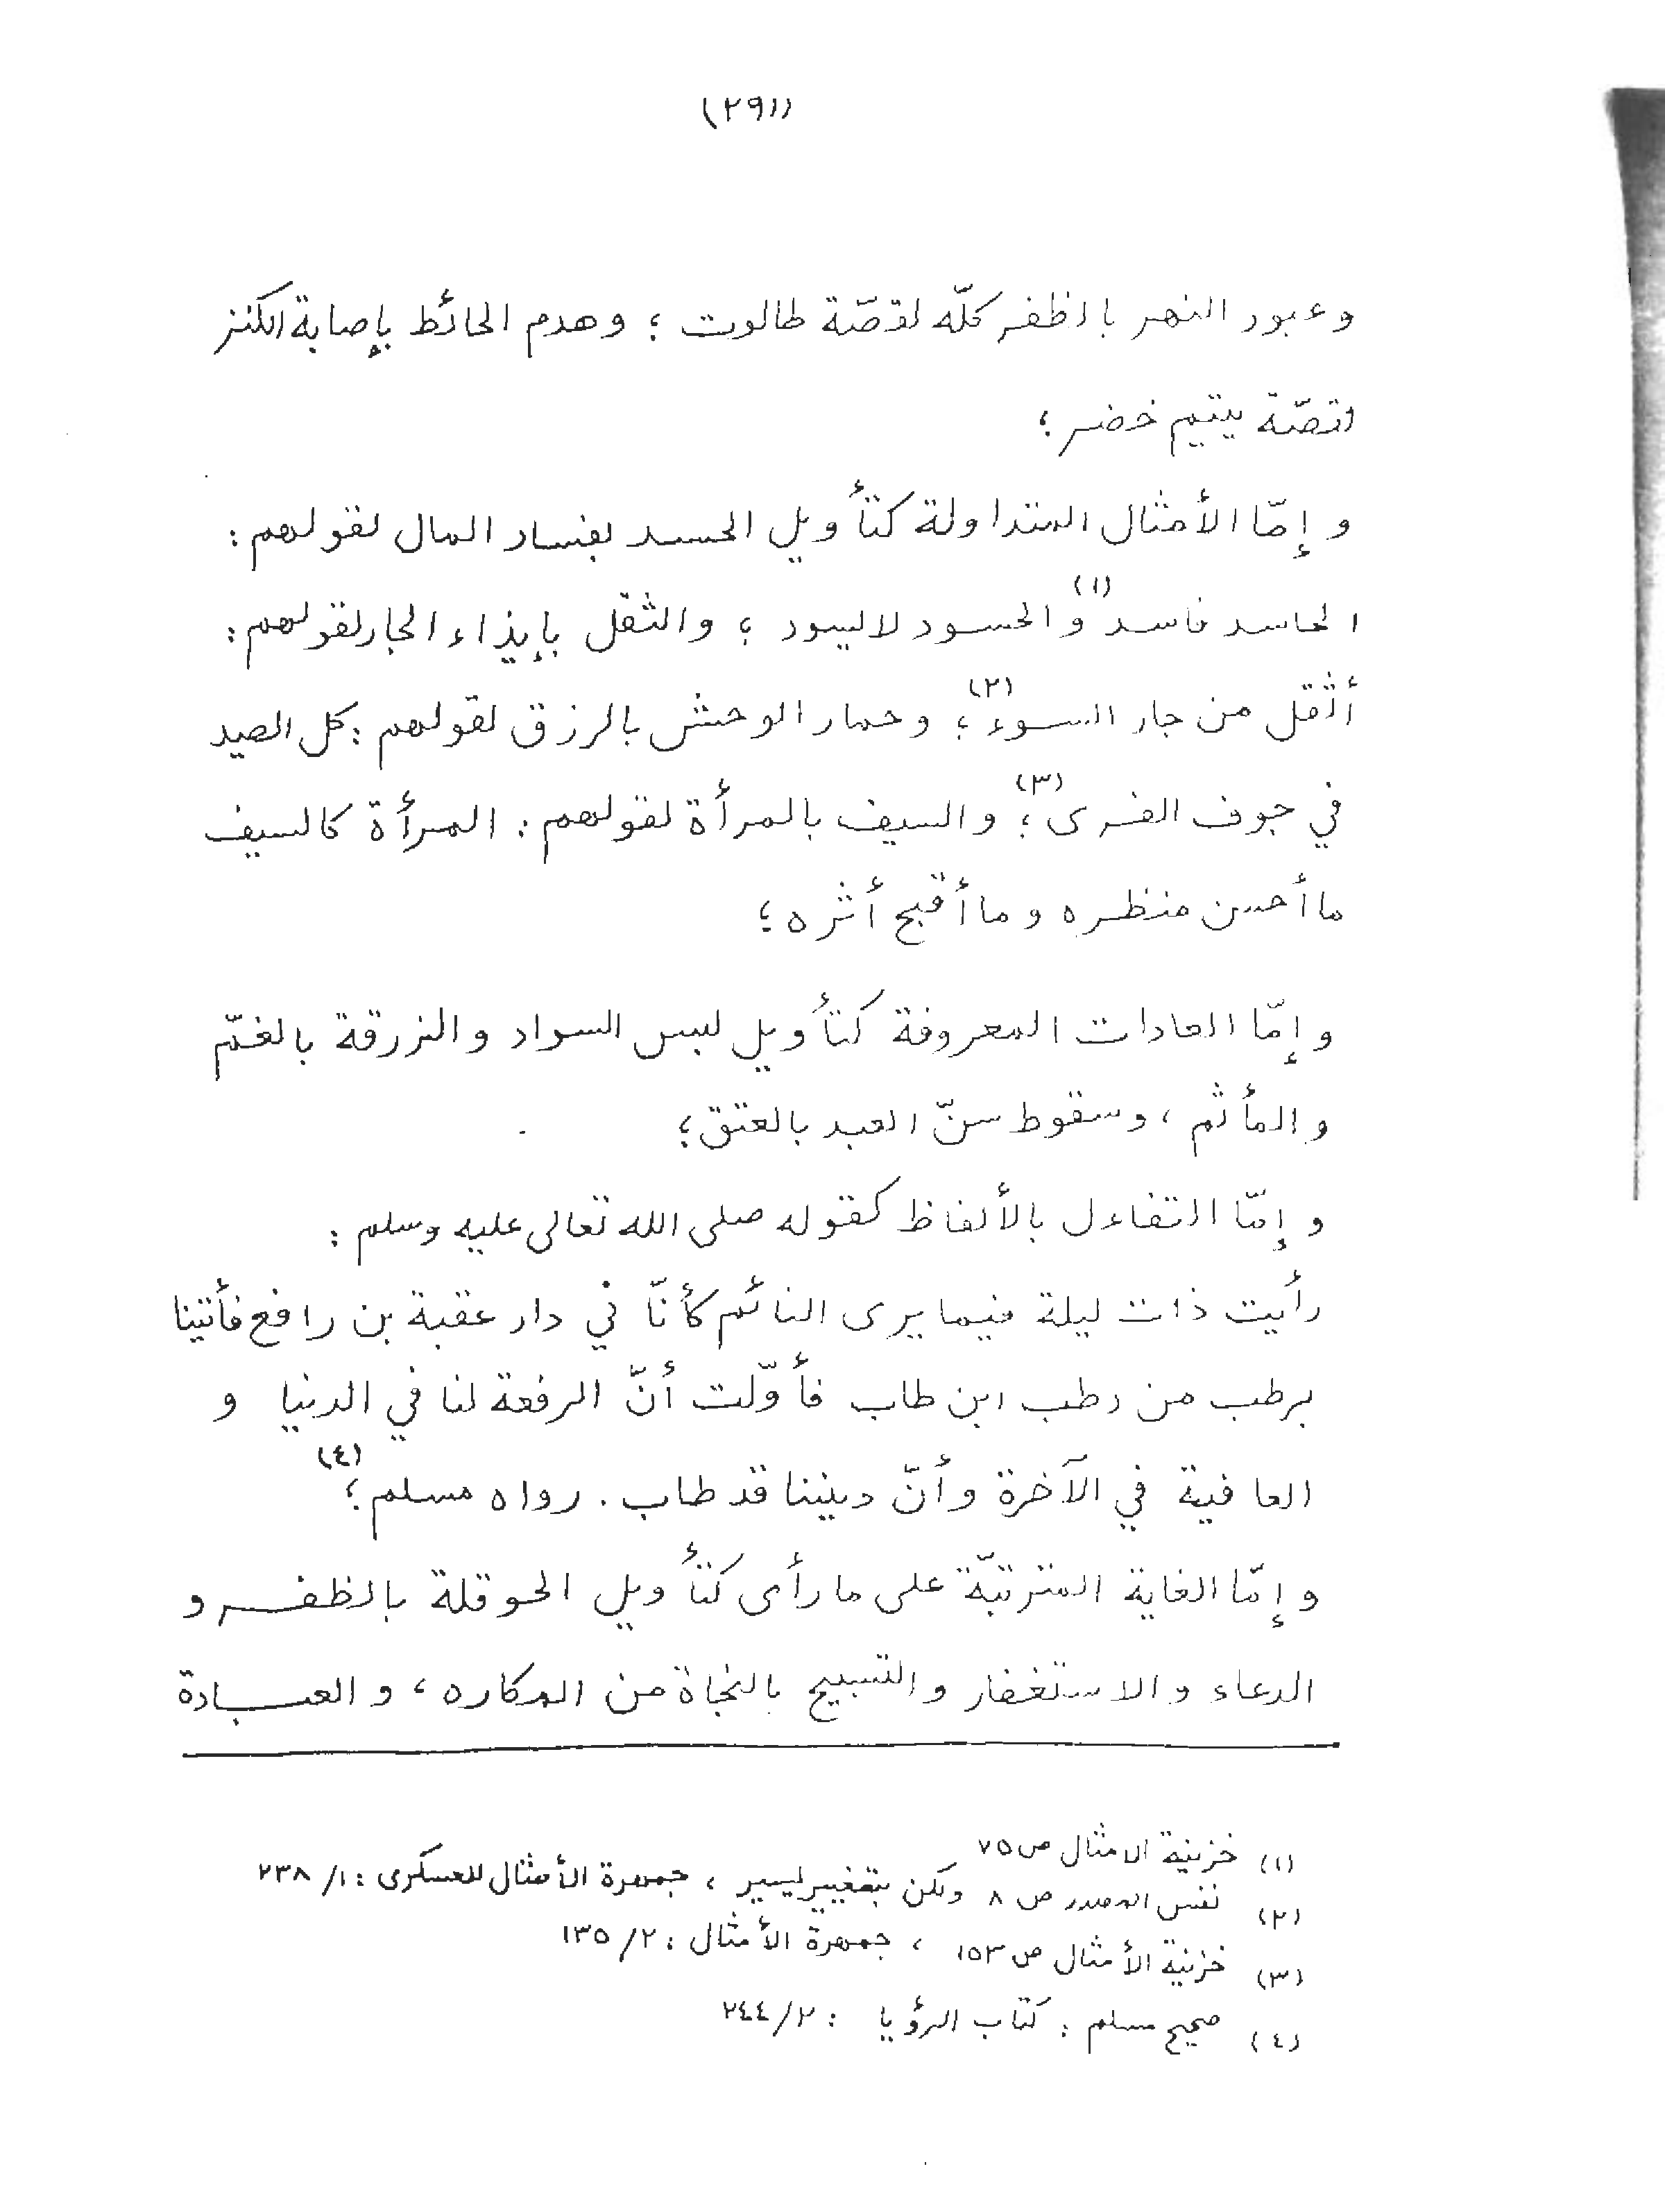 (٢٩١)
وعبور النهر بالظفر كلّه لقصّة طالوت ؛ وهدم الحائط بإصابة الكنز
لقصّة يتيم خضر ؛
و إمّا الأمثال المتداولة كتأويل الحسد بفساد المال لقولهم :
الحاسد فاسد (١) والحسود لا يسود ؛ والثقل بإيذاء الجار لقولهم :
أثقل من جار السوء (٢) ؛ وحمار الوحش بالرزق لقولهم : كل الصيد
في جوف الفرى (٣) ؛ والسيف بالمرأة لقولهم : المرأة كالسيف
ما أحسن منظره وما أقبح أثره ؛
و إمّا العادات المعروفة كتأويل لبس السواد والزرقة بالغمّ
والمأثم ، وسقوط سنّ العبد بالعتق ؛
و إمّا التفاءل بالألفاظ كقوله صلى الله تعالى عليه وسلم :
رأيت ذات ليلة فيما يرى النائم كأنّا في دار عقبة بن رافع فأتينا
برطب من رطب ابن طاب فأوّلت أنّ الرفعة لنا في الدنيا و
العافية في الآخرة وأنّ ديننا قد طاب . رواه مسلم (٤) ؛
و إمّا الغاية المترتبّة على ما رأى كتأويل الحوقلة بالظفر و
الدعاء والاستغفار والتسبيح بالنجاة من المكاره ، والعبادة
(١) خزينة الامثال ص ٧٥
(٢) نفس المصدر ص ٨ ولكن بتغيير يسير ، جمهرة الأمثال للعسكرى : ١/ ٢٣٨
(٣) خزينة الأمثال ص ١٥٣ ، جمهرة الأمثال : ٢/ ١٣٥
(٤) صحيح مسلم : كتاب الرؤيا : ٢/ ٢٤٤